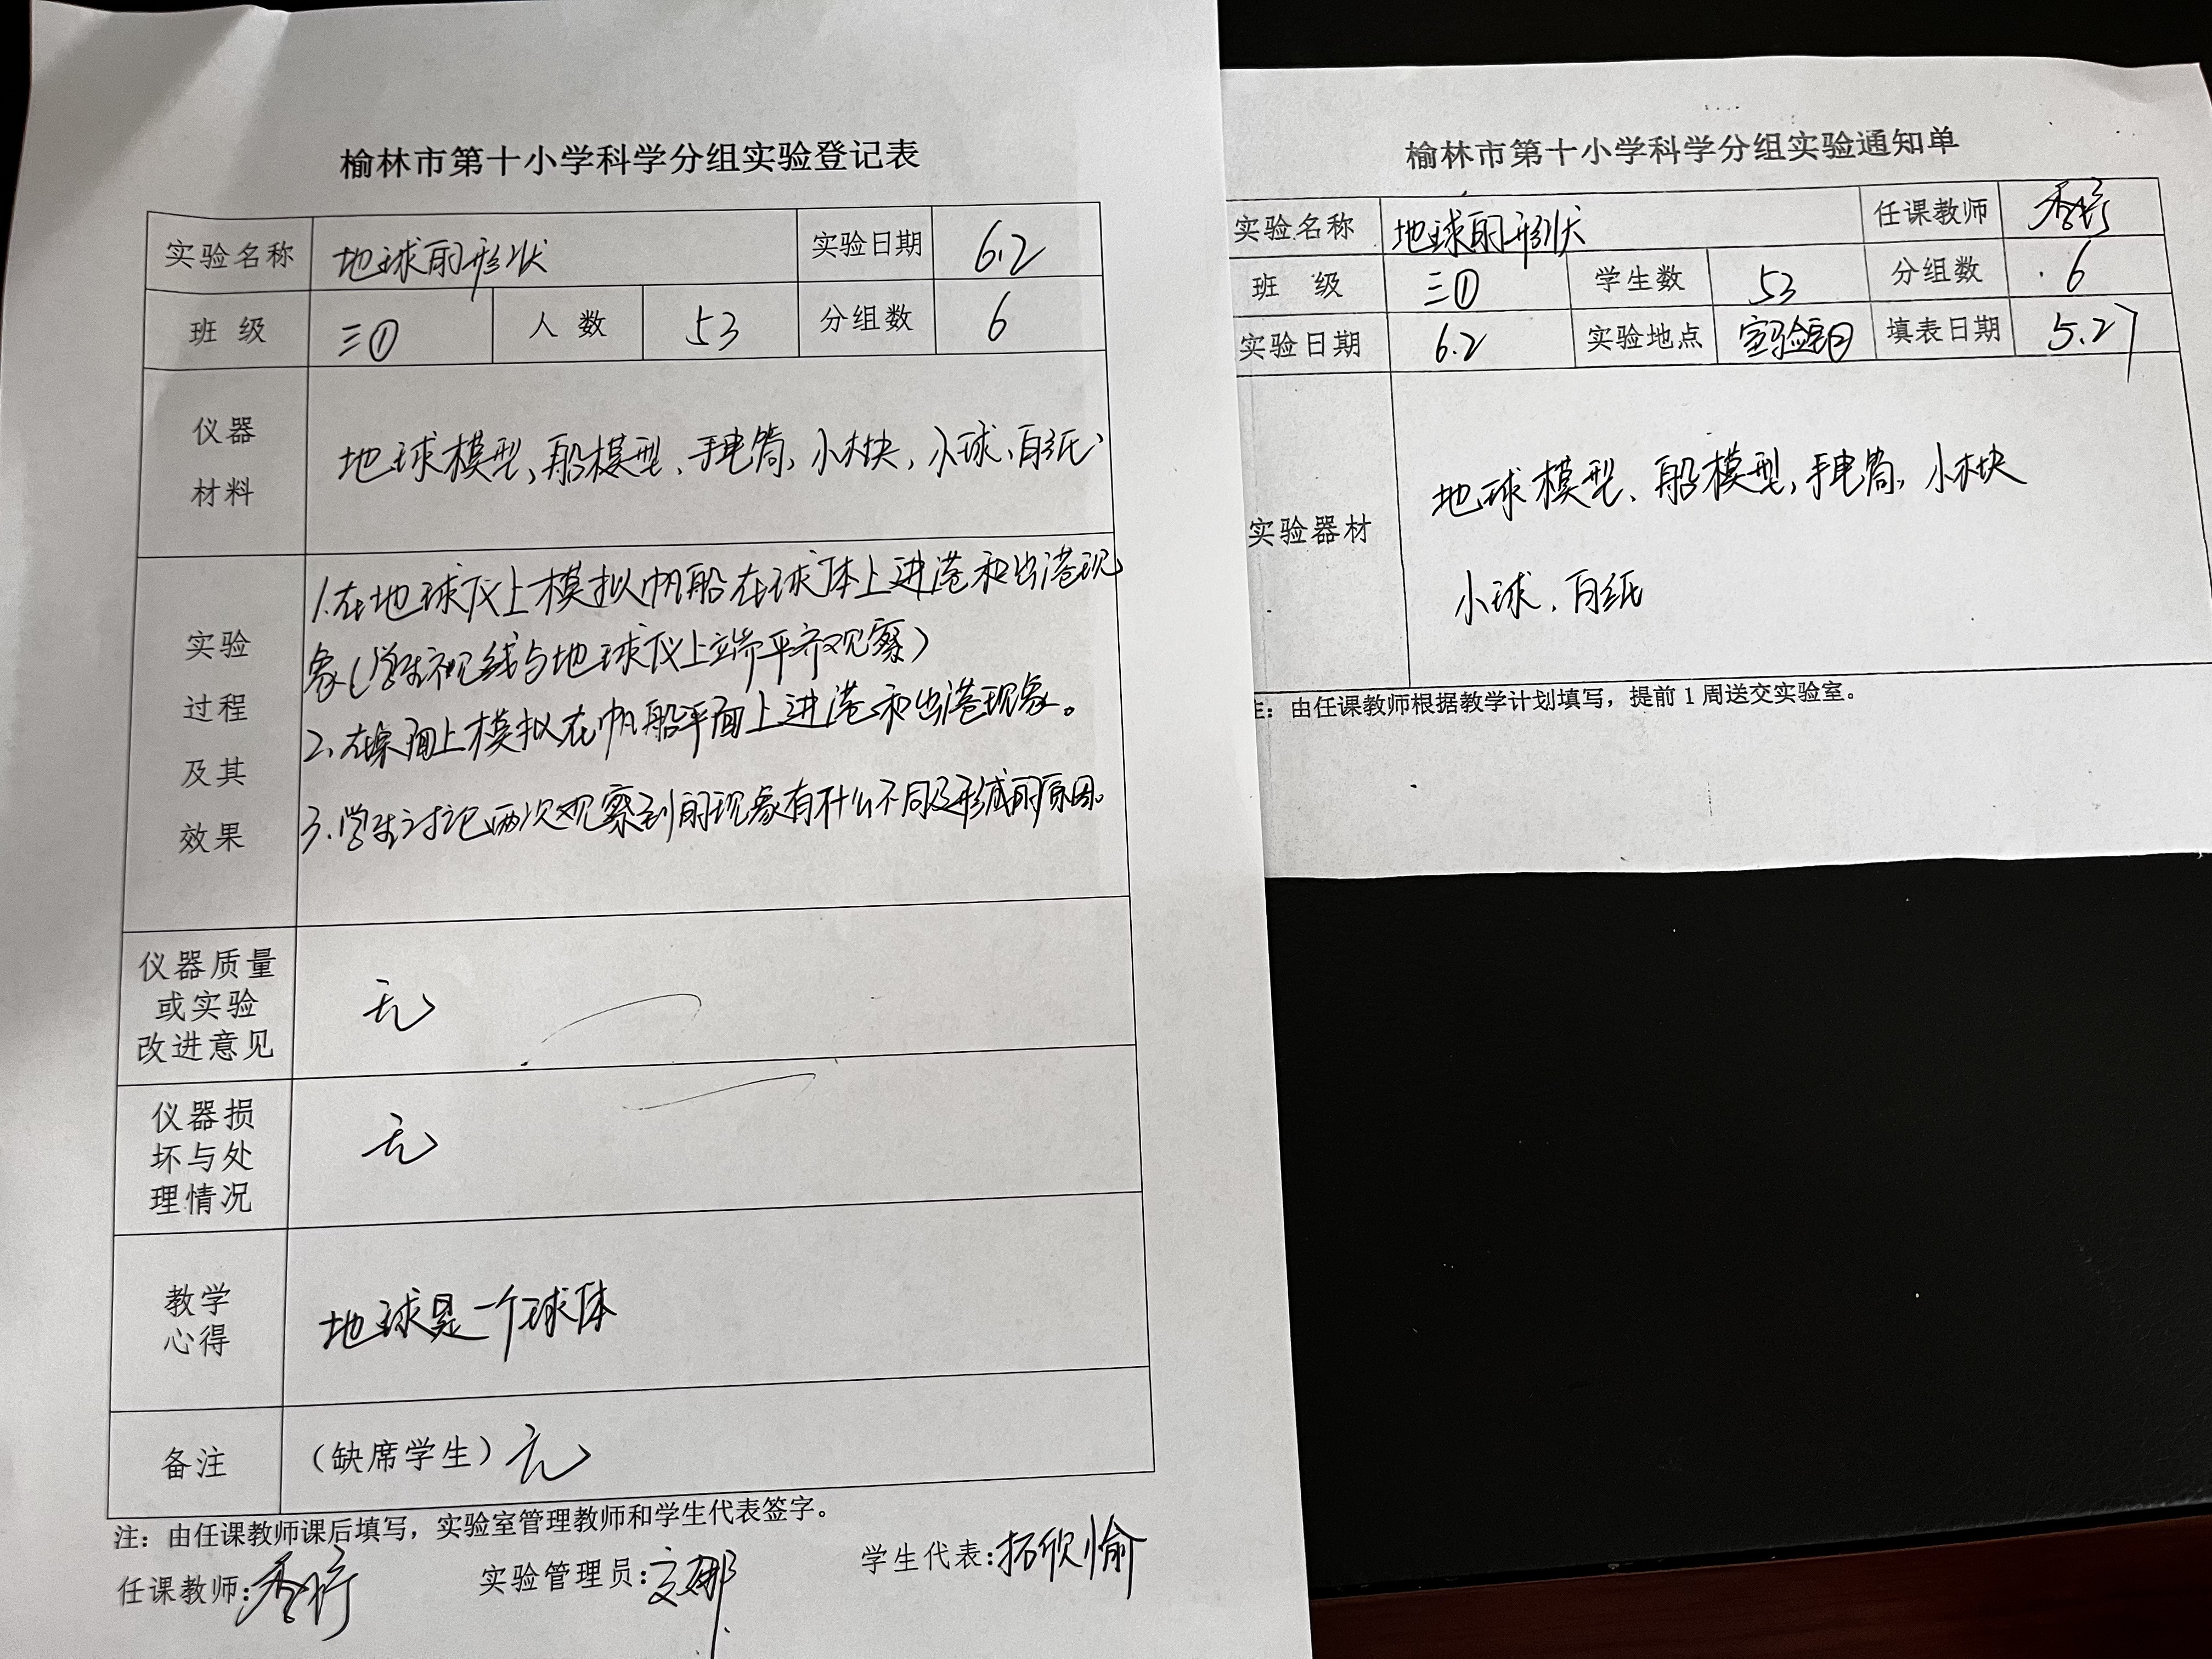 榆林市第十小学科学分组实验登记表
实验名称 地球的形状 实验日期 6.2
班 级 三① 人 数 53 分组数 6
仪器
材料
地球模型、船模型、手电筒，小木块，小球、白纸
实验
过程
及其
效果
1.在地球仪上模拟帆船在球体上进港和出港现
象（学生视线与地球仪上端平齐观察）
2.在桌面上模拟在帆船平面上进港和出港现象。
3.学生讨论两次观察到的现象有什么不同及形成的原因。
仪器质量
或实验
改进意见
无
仪器损
坏与处
理情况
无
教学
心得
地球是一个球体
备注 （缺席学生）无
注：由任课教师课后填写，实验室管理教师和学生代表签字。
任课教师: 实验管理员: 学生代表:拓欣愉
榆林市第十小学科学分组实验通知单
实验名称 地球的形状 任课教师
班 级 三① 学生数 53 分组数 6
实验日期 6.2 实验地点 实验室 填表日期 5.27
实验器材
地球模型、船模型，手电筒，小木块
小球、白纸
注：由任课教师根据教学计划填写，提前 1 周送交实验室。